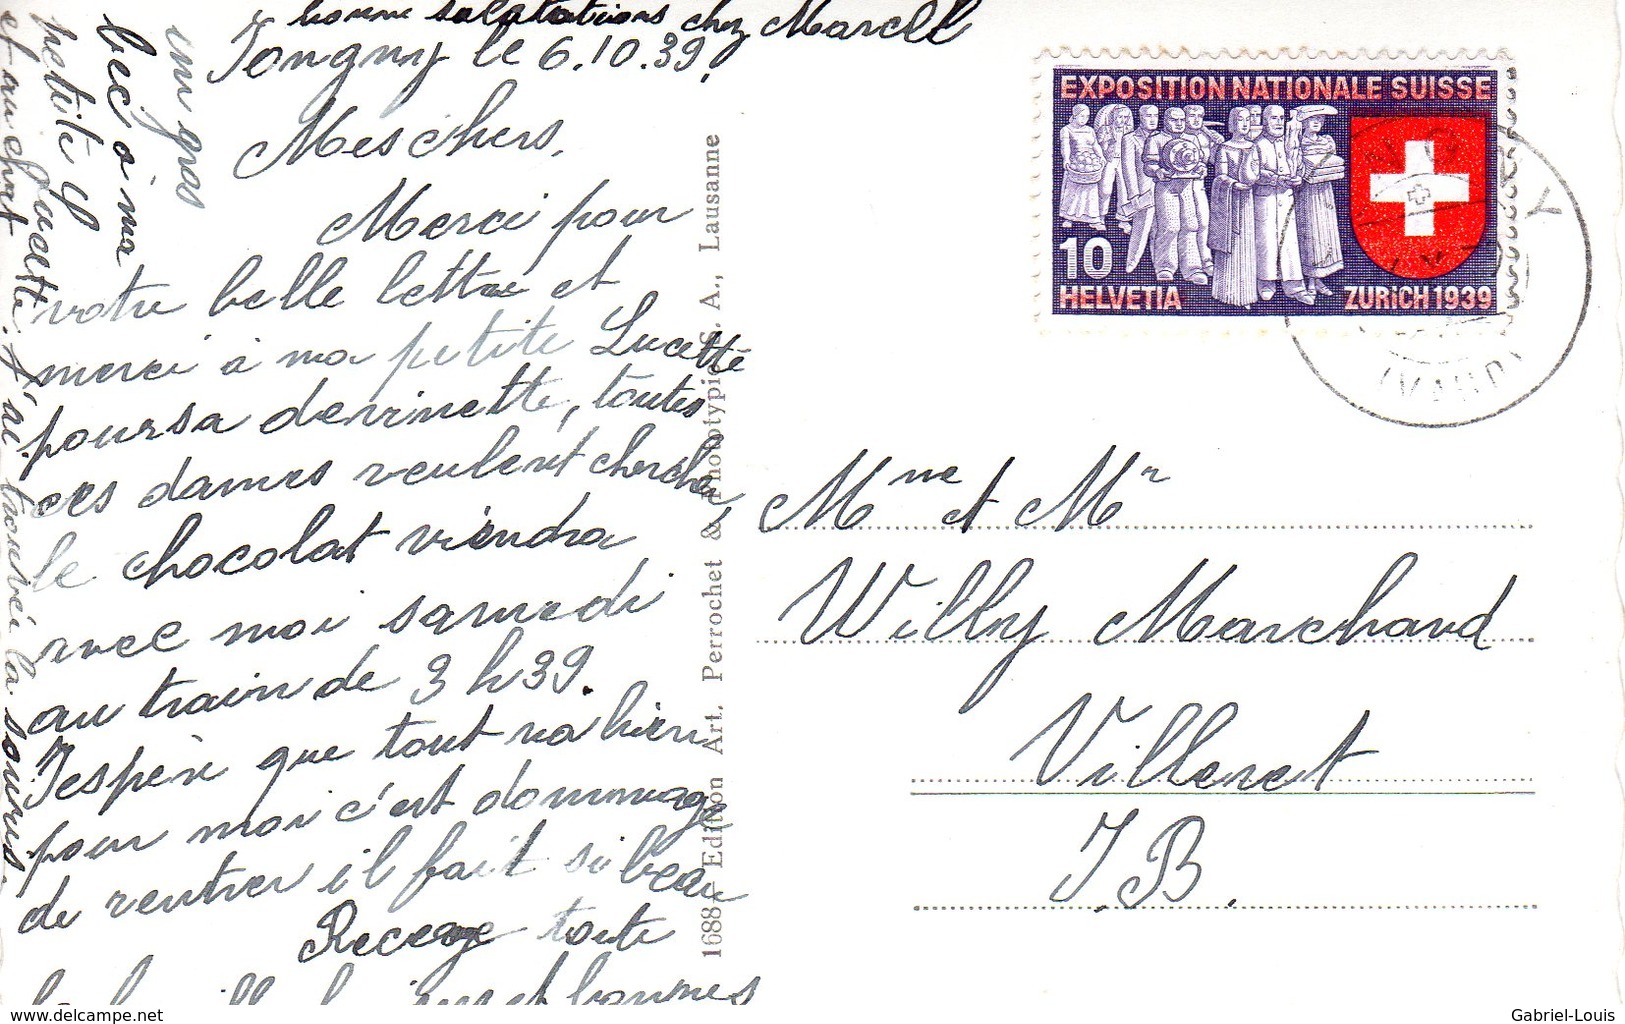 bonne salutations chez Marcell
Jongny le 6.10.39.
Mes chers,
Merci pour
votre belle lettre et
merci à ma petite Lucette
pour sa devinette, toutes
ces dames veulent chercher,
le chocolat viendra
avec moi samedi
au train de 3 h 39.
J'espère que tout va bien
pour moi c'est dommage
de rentrer il fait si beau
Recevez toute
la famille et bonnes
un gros
bec à ma
petite
Lucette. J'ai trouvé la souris
et au chat
1688 - Edition Art. Perrochet & Phototypie S. A., Lausanne
EXPOSITION NATIONALE SUISSE
10
HELVETIA
ZURICH 1939
(VAUD)
Mme et Mr
Willy Marchand
Villeret
J.B.
www.delcampe.net
Gabriel-Louis